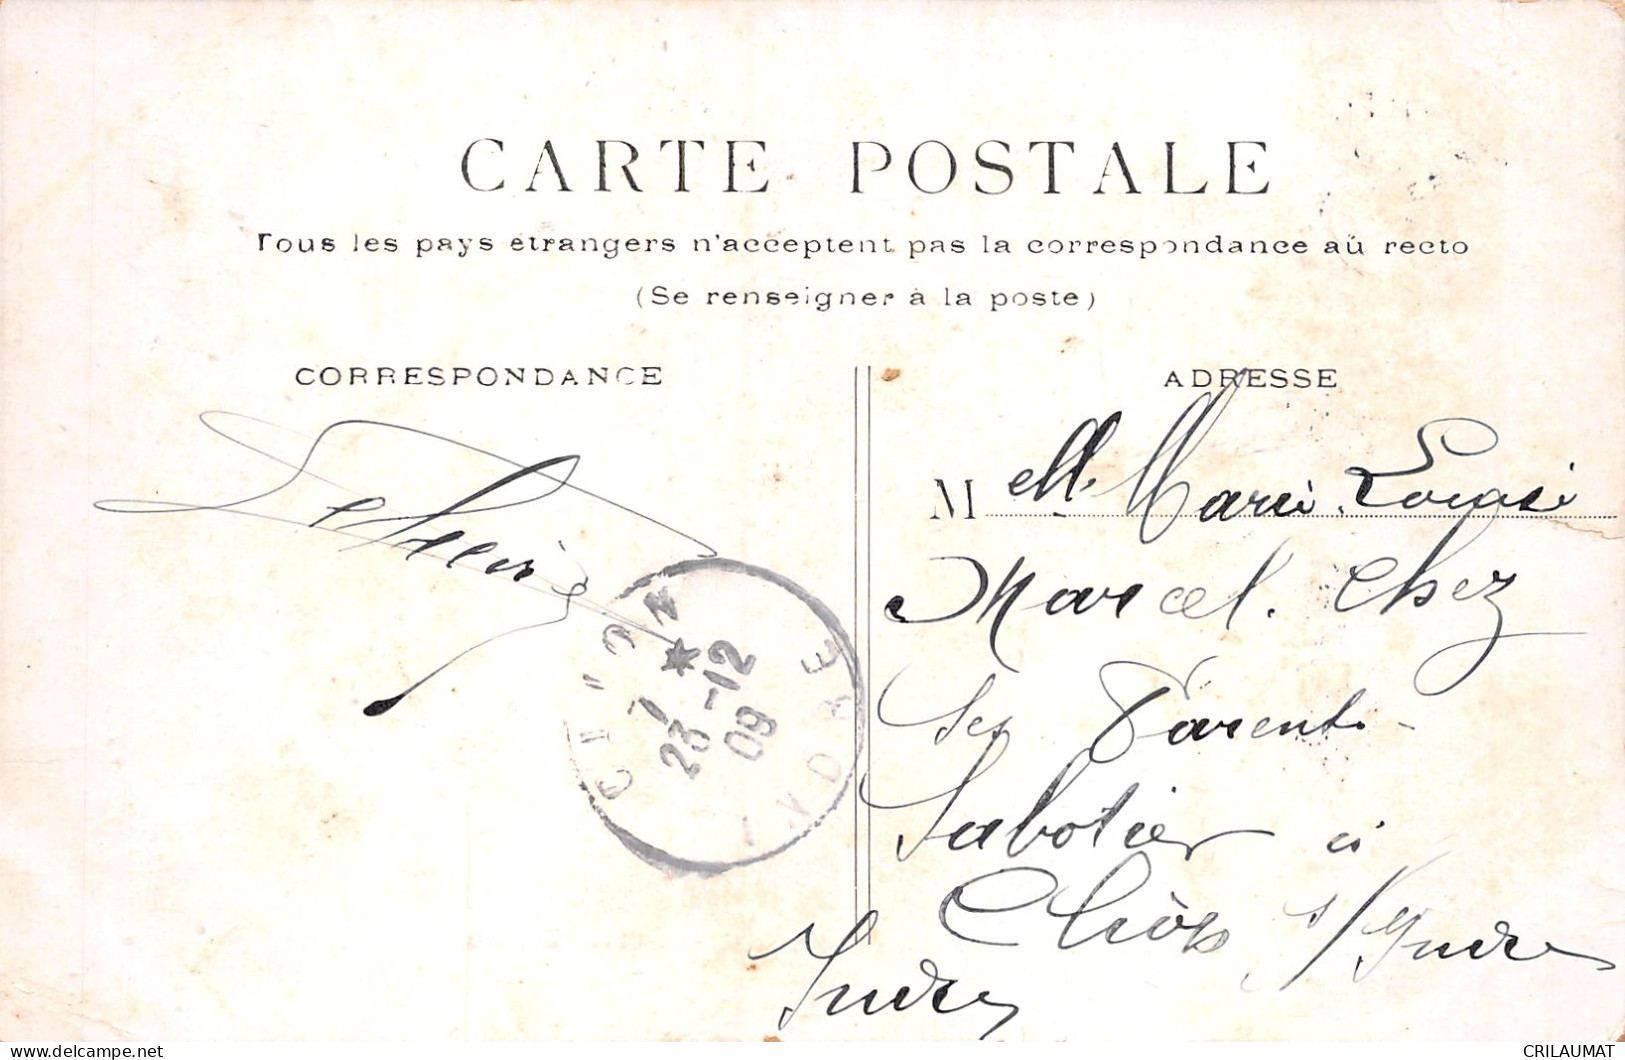 CARTE POSTALE
Tous les pays étrangers n'acceptent pas la correspondance au recto
(Se renseigner à la poste)
CORRESPONDANCE
ADRESSE
Melle Marie
Marcel. Chez
Ses Parents
Sabotier à
Cliòn s/Indre
Indre
CLION
7 *
23 -12
09
INDRE
CRILAUMAT